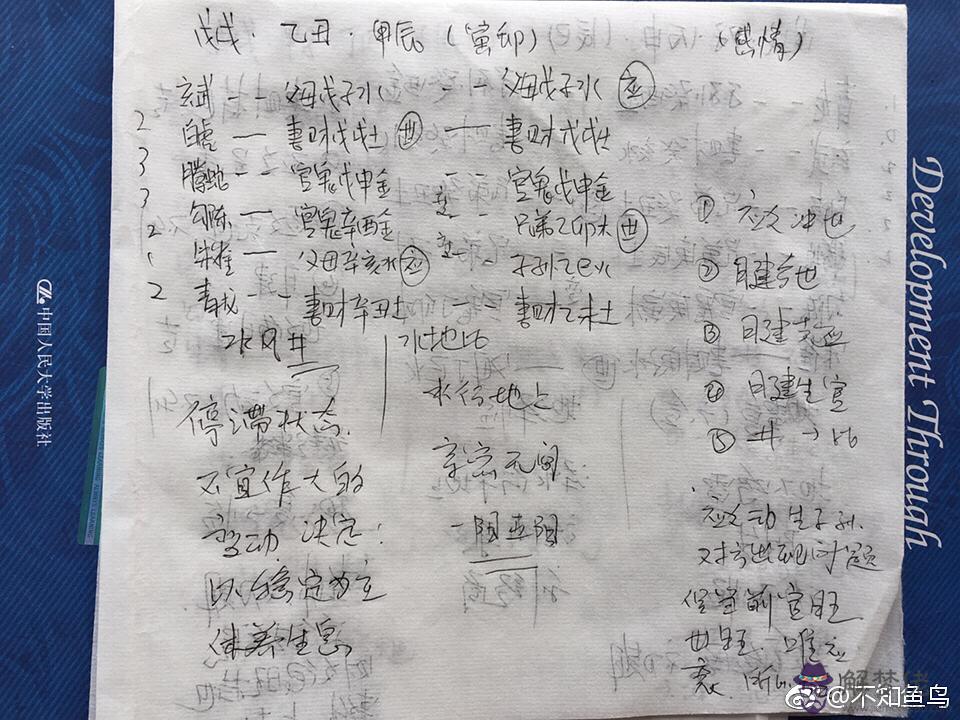 戊戌·乙丑·甲辰(寅卯) (感情)
玄武 - - 父母戊子水 - - 父母戊子水 应
2 白虎 — 妻财戊戌土 世 — 妻财戊戌土
3 腾蛇 - - 官鬼戊申金 - - 官鬼戊申金
3 勾陈 — 官鬼辛酉金 变 - - 兄弟乙卯木 世
2 朱雀 — 父母辛亥水 应 变 - - 子孙乙巳火
1
2 青龙 - - 妻财辛丑土 - - 妻财乙未土
水风井 水地比
停滞状态.
不宜作大的
变动 决定:
以稳定为主
休养生息
水行地上
亲密无间
一阳五阴
① 应爻冲世
② 日建合世
③ 日建克应
④ 日建生官
⑤ 井→比
应爻动生子孙.
对方出现问题
但当前官旺
世旺. 唯应
衰.
中国人民大学出版社
Development Through
解梦佬
@不知鱼鸟